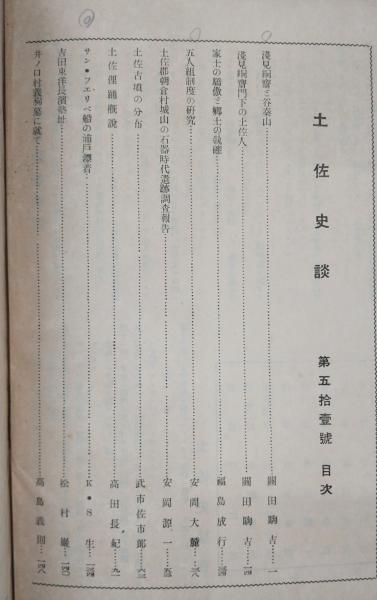 土佐史談 第五拾壹號 目次
淺見絅齋と谷秦山 關田駒吉 一
淺見絅齋門下の土佐人 關田駒吉
家士の驕傲と鄕士の 福島成行
五人組制度の硏究 安岡大
土佐郡朝倉村城山の石器時代遺跡調査報告 安岡源一
土佐古墳の分布 武市佐市郎
土佐俚踊槪說 高田長紀 九一
サン・フエリペ船の浦戶漂着 K・S生
吉田東洋長濱塾址 松村巖
井ノ口村義菊墓に就て 高島義則